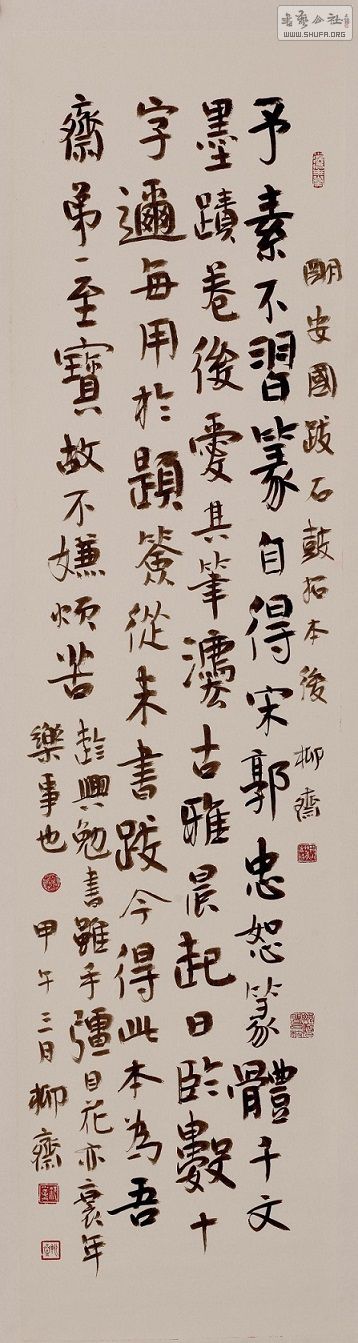 予素不習篆自得宋郭忠恕篆體千文
墨蹟卷後愛其筆濃古雅晨起日臨數十
字邇每用於題簽從未書跋今得此本為吾
齋第一至寶故不嫌煩苦
趁興勉書雖手彊目花亦衰年
樂事也
甲午三月柳齋
明安國跋石鼓拓本後
柳齋
WWW.SHUFA.ORG